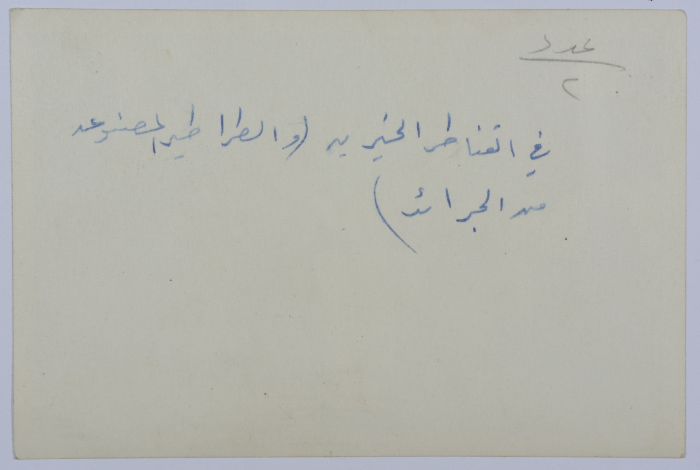 عدد
٢
في القناطر الخيرية (والطراطير المصنوعه
من الجرائد)